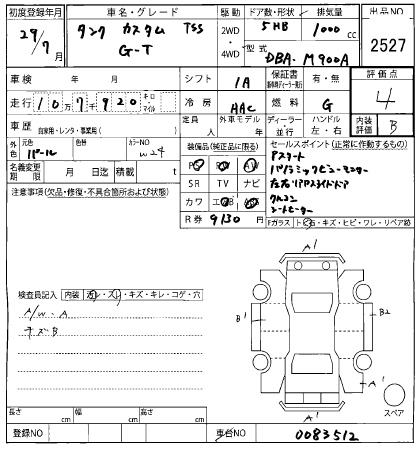 初度登録年月 車名・グレード 駆動 ドア数・形状 排気量 出品NO
29/7月 タンク カスタム TSS 2WD・4WD 5HB 1000cc 2527
G-T 型式 DBA-M900A
車検 年 月 シフト IA 保証書 有・無 評価点
走行 10万7千920 キロ・マイル 冷房 AAC 燃料 G 4
車歴 自家用・レンタ・事業用( ) 定員 人 外車モデル 年 ディーラー・並行 ハンドル 左・右 内装評価 B
外色 元色 パール 色替 カラーNO W24 装備品(純正品に限る) セールスポイント(正常に作動するもの)
名義変更期限 月 日 積載 t PS PW AW アスマート
注意事項(欠品・修復・不具合箇所および状態) SR TV ナビ パノラミックビューモニター
カワ エアB ABS 左右リアPスライドドア
R券 9130円 クルコン
シートヒーター
Fガラス トビ石・キズ・ヒビ・ワレ・リペア跡
A1
検査員記入 内装 汚レ・スレ・キズ・キレ・コゲ・穴
A/W・A
キズB
B1 B2
A1
A1
スペア
長さ cm 幅 cm 高さ cm
登録NO 車台NO 0083512